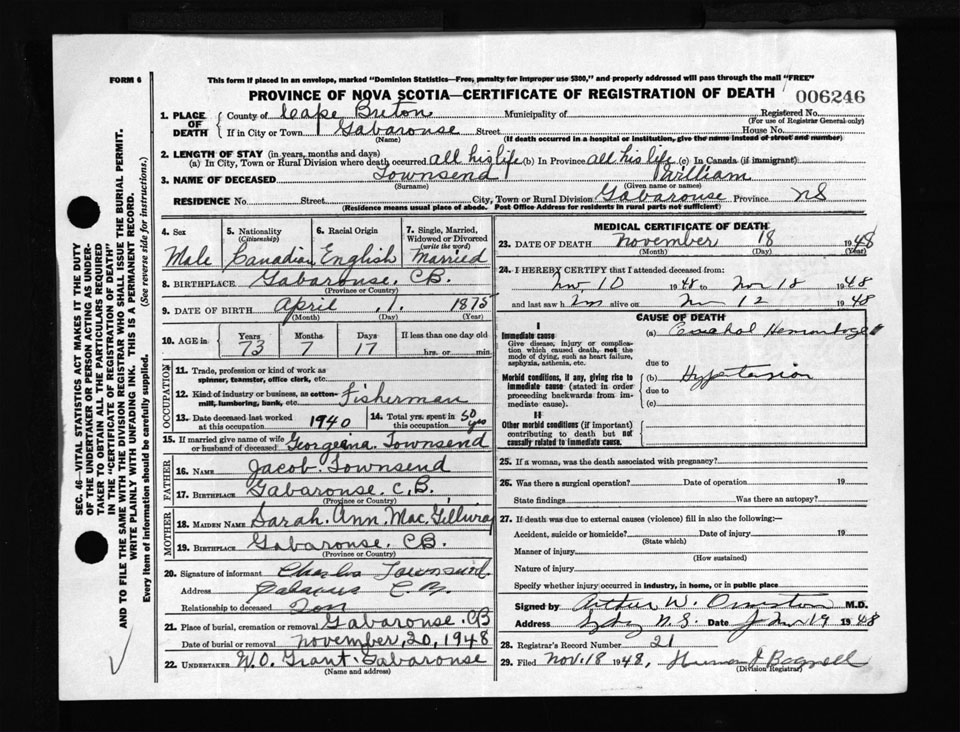 FORM 6
This form if placed in an envelope, marked "Dominion Statistics—Free, penalty for improper use $300," and properly addressed will pass through the mail "FREE"
PROVINCE OF NOVA SCOTIA—CERTIFICATE OF REGISTRATION OF DEATH 006246
1. PLACE OF DEATH { County of Cape Breton Municipality of Registered No.
(For use of Registrar General only)
If in City or Town Gabarouse Street House No.
(Name) (If death occurred in a hospital or institution, give the name instead of street and number)
2. LENGTH OF STAY (in years, months and days)
(a) In City, Town or Rural Division where death occurred all his life (b) In Province all his life (c) In Canada (if immigrant)
3. NAME OF DECEASED Townsend William
(Surname) (Given name or names)
RESIDENCE No. Street City, Town or Rural Division Gabarouse Province NS
(Residence means usual place of abode. Post Office Address for residents in rural parts not sufficient)
4. Sex Male
5. Nationality (Citizenship) Canadian
6. Racial Origin English
7. Single, Married, Widowed or Divorced (write the word) Married
8. BIRTHPLACE Gabarouse, CB.
(Province or Country)
9. DATE OF BIRTH April 1, 1875
(Month) (Day) (Year)
10. AGE in { Years 73 Months 7 Days 17 If less than one day old hrs. or min.
OCCUPATION
11. Trade, profession or kind of work as spinner, teamster, office clerk, etc.
12. Kind of industry or business, as cotton-mill, lumbering, bank, etc. Fisherman
13. Date deceased last worked at this occupation 1940
14. Total yrs. spent in this occupation 50 yrs
15. If married give name of wife or husband of deceased Georgeina Townsend
FATHER
16. NAME Jacob Townsend
17. BIRTHPLACE Gabarouse, C,B,
(Province or Country)
MOTHER
18. MAIDEN NAME Sarah Ann Mac Gillivray
19. BIRTHPLACE Gabarouse, CB.
(Province or Country)
20. Signature of informant Charles Townsend
Address C.B.
Relationship to deceased Son
21. Place of burial, cremation or removal Gabarouse, CB
Date of burial or removal November 20, 1948
22. UNDERTAKER W.O. Grant. Gabarouse
(Name and address)
MEDICAL CERTIFICATE OF DEATH
23. DATE OF DEATH November 18 1948
(Month) (Day) (Year)
24. I HEREBY CERTIFY that I attended deceased from:
Nov 10 1948 to Nov 18 1948
and last saw him alive on Nov 12 1948
CAUSE OF DEATH
I
Immediate cause
Give disease, injury or complication which caused death, not the mode of dying, such as heart failure, asphyxia, asthenia, etc.
(a) Cerebral Hemorrhage
due to
Morbid conditions, if any, giving rise to immediate cause (stated in order proceeding backwards from immediate cause).
(b) Hypertension
due to
(c)
II
Other morbid conditions (if important) contributing to death but not causally related to immediate cause.
25. If a woman, was the death associated with pregnancy?
26. Was there a surgical operation? Date of operation 19
State findings Was there an autopsy?
27. If death was due to external causes (violence) fill in also the following:—
Accident, suicide or homicide? Date of injury 19
(State which)
Manner of injury
(How sustained)
Nature of injury
Specify whether injury occurred in industry, in home, or in public place
Signed by Arthur W. Ormiston M.D.
Address Sydney N.S. Date Nov 19 1948
28. Registrar's Record Number 21
29. Filed Nov. 18 1948, J Bagnell
(Division Registrar)
SEC. 46—VITAL STATISTICS ACT MAKES IT THE DUTY
OF THE UNDERTAKER OR PERSON ACTING AS UNDER-
TAKER TO OBTAIN ALL THE PARTICULARS REQUIRED
IN THE "CERTIFICATE OF REGISTRATION OF DEATH"
AND TO FILE THE SAME WITH THE DIVISION REGISTRAR WHO SHALL ISSUE THE BURIAL PERMIT.
WRITE PLAINLY WITH UNFADING INK. THIS IS A PERMANENT RECORD.
Every item of information should be carefully supplied. (See reverse side for instructions.)